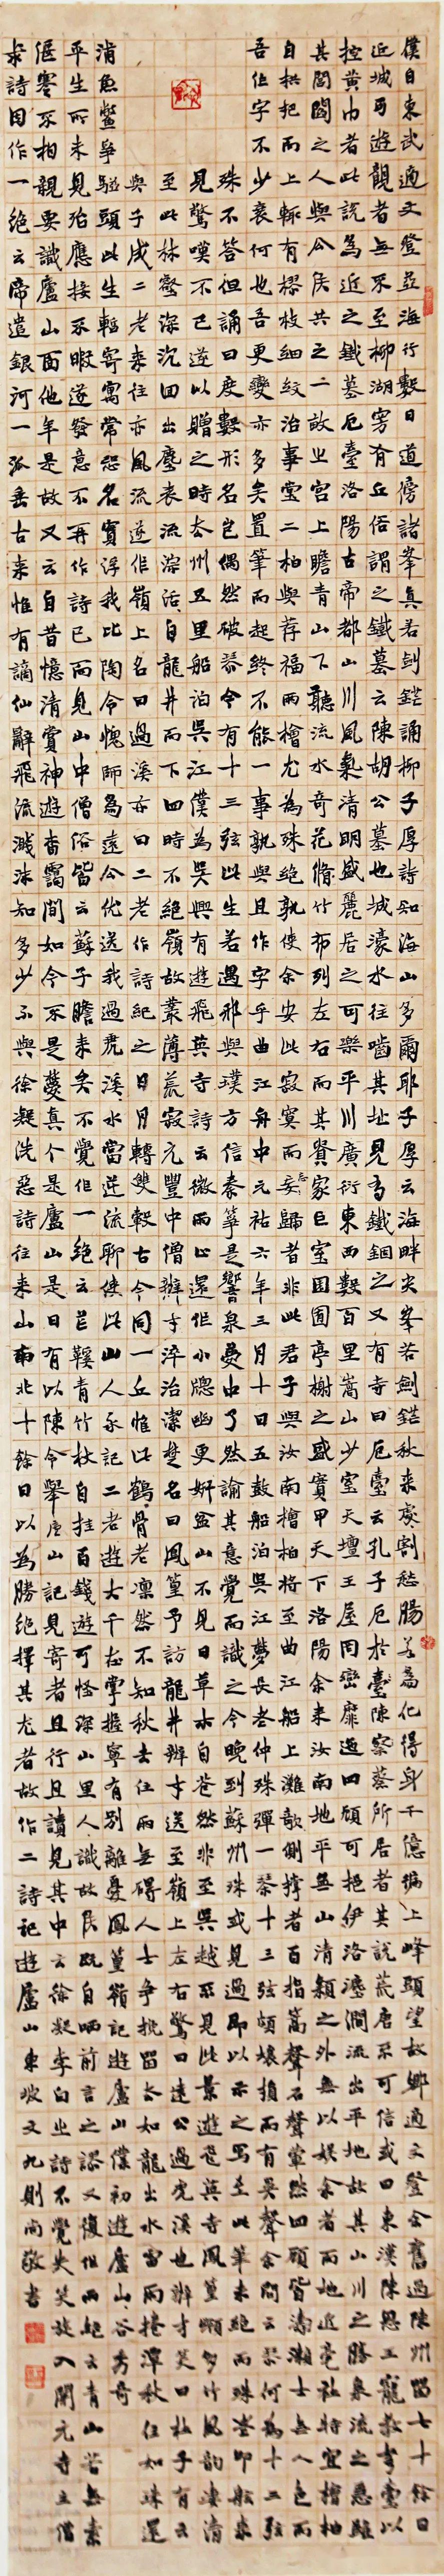 僕自東武適文登並海行數日道傍諸峯真若劍鋩誦柳子厚詩知海山多爾耶子厚云海畔尖峯若劍鋩秋來處處割愁腸若為化得身千億徧上峰頭望故鄉適文登余舊過陳州留七十餘日
近城可遊觀者無不至柳湖旁有丘俗謂之鐵墓云陳胡公墓也城濠水往嚙其址見有鐵錮之又有寺曰厄臺云孔子厄於臺陳蔡所居者其說荒唐不可信或曰東漢陳愍王寵散弩臺以
控黃巾者此說為近之鐵墓厄臺洛陽古帝都山川風氣清明盛麗居之可樂平川廣衍東西數百里嵩山少室天壇王屋岡巒靡迤四顧可挹伊洛瀍澗流出平地故其山川之勝泉流之悉雖
其閭閻之人與公侯共之一故上宮上瞻青山下聽流水奇花脩竹布列左右而其貴家巨室園囿亭榭之盛實甲天下洛陽余來汝南地平無山清潁之外無以娛余者而地近亳社特宜檜柏
自拱把而上輒有樛枝細紋治事堂二柏與荐福兩檜尤為殊絕孰使余安此寂寞而忘歸者非此君子與汝南檜柏將至曲江船上灘欹側撐者百指篙聲石聲犖然四顧皆濤瀨士無人色而
吾作字不少衰何也吾更變亦多矣置筆而起終不能一事孰與且作字乎曲江舟中元祐六年三月十日五鼓船泊吳江夢長老仲殊彈一琴十三弦頗壞損而有異聲余問云琴何為十三弦
殊不答但誦曰度數形名豈偶然破琴今有十三弦此生若遇邢與璞方信秦箏是響泉夢中了然諭其意覺而識之今晚到蘇州殊或見過即以示之寫至此筆未絕而殊老叩舷來
見驚嘆不已遂以贈之時去州五里船泊吳江僕為吳興有遊飛英寺詩云微雨止還作小牕幽更妍盆山不見日草木自蒼然非至吳越不見此景遊飛英寺鳳篁嶺多竹風韵凄清
至此林壑深沉迥出塵表流淙活自龍井而下四時不絕嶺故叢薄荒寂元豐中僧辯才淬治潔楚名曰鳳篁予訪龍井辯才送至嶺上左右驚曰遠公過虎溪也辯才笑曰杜子有云
與子成二老來往亦風流遂作嶺上名曰過溪亦曰二老作詩紀之日月轉雙轂古今同一丘惟此鶴骨老凜然不知秋去住兩無礙人士爭挽留去如龍出水雷雨捲潭秋住如珠還
浦魚鱉爭駢頭此生暫寄寓常恐名實浮我比陶令愧師為遠公優送我過虎溪水當逆流聊使此山人永記二老遊大千在掌握寧有別離憂鳳篁嶺記遊廬山僕初遊廬山谷秀奇
平生所未見殆應接不暇遂發意不再作詩已而見山中僧俗皆云蘇子瞻來矣不覺作一絕云芒鞵青竹杖自挂百錢遊可怪深山里人識故民既自哂前言之謬又復作兩絕云青山若無素
偃蹇不相親要識廬山面他年是故又云自昔憶清賞神遊杳靄間如今不是夢真个是廬山是日有以陳令舉廬山記見寄者且行且讀見其中云徐凝李白之詩不覺失笑旋入開元寺主僧
求詩因作一絕云帝遣銀河一派垂古來惟有謫仙辭飛流濺沫知多少不與徐凝洗惡詩往來山南北十餘日以為勝絕擇其尤者故作二詩記遊廬山東坡文九則尚敬書